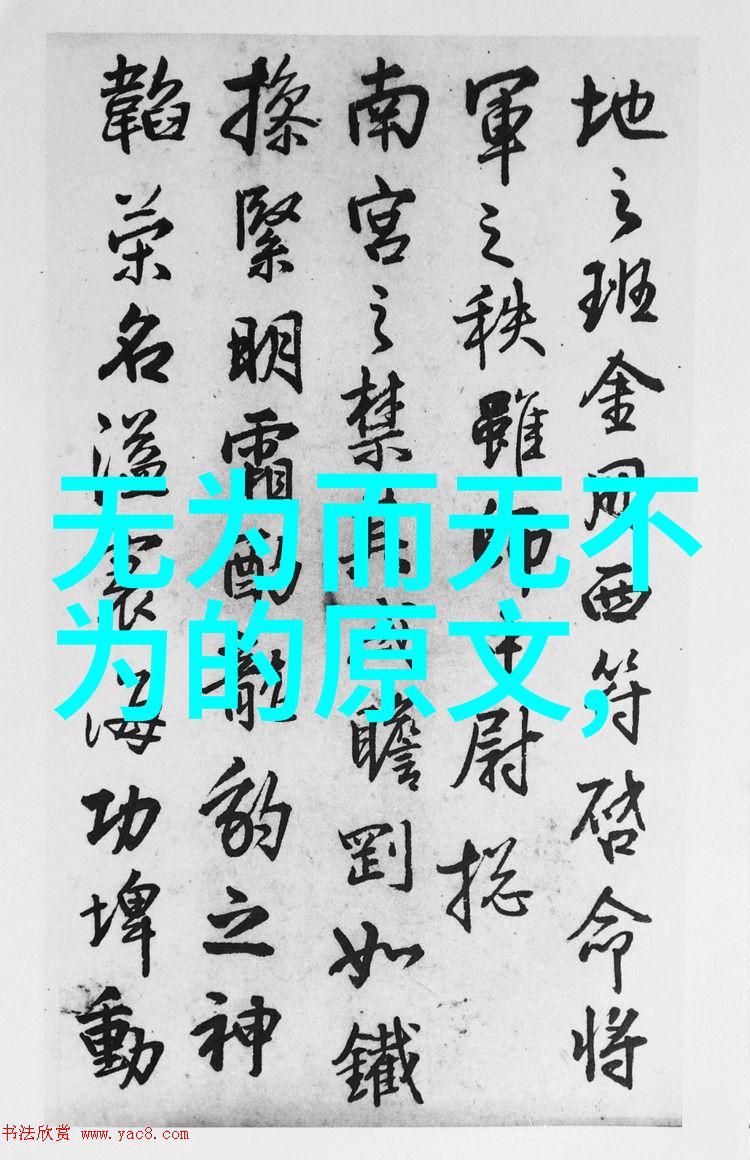 地之班金冊西符啓命将
軍之秩雖中尉揔
南宫之禁膽剛如鐵
操緊明霜龍豹之神
韜荣名溢寰海功埤動
无为而无不
为的原文,
书法欣赏 www.yac8.com